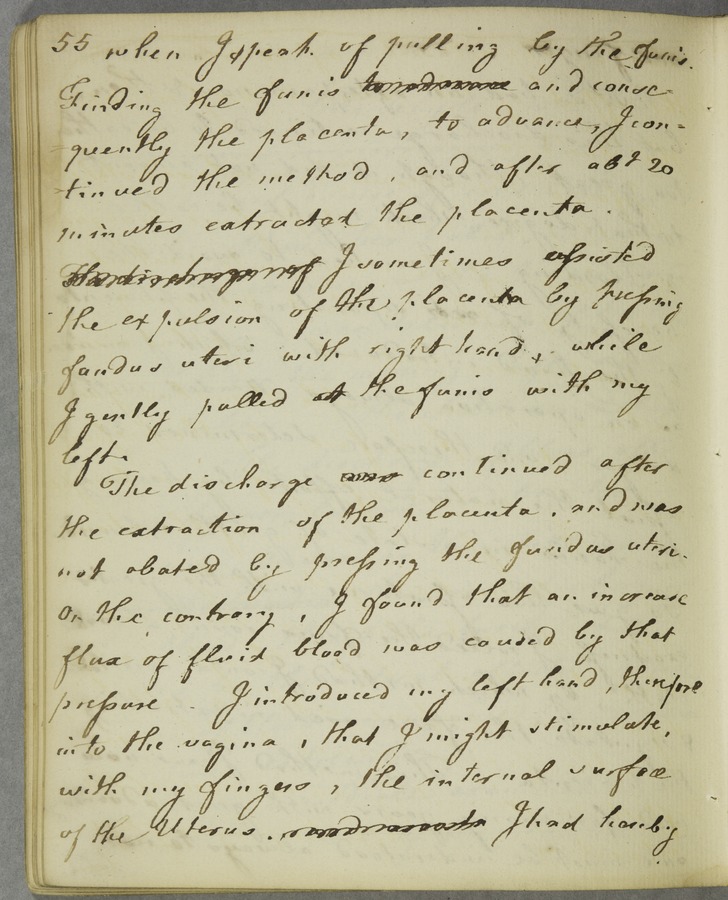 55 when I speak of pulling by the funis.
Finding the funis and conse-
quently the placenta, to advance, I con-
tinued the method, and after abt 20
minutes extracted the placenta.
I sometimes assisted
the expulsion of the placenta by pressing
fundus uteri with right hand, while
I gently pulled at the funis with my
left.
The discharge was continued after
the extraction of the placenta, and was
not abated by pressing the fundus uteri.
On the contrary, I found that an increase
flux of fluid blood was caused by that
pressure. I introduced my left hand, therefore
into the vagina, that I might stimulate,
with my fingers, the internal surface
of the Uterus. I had hereby